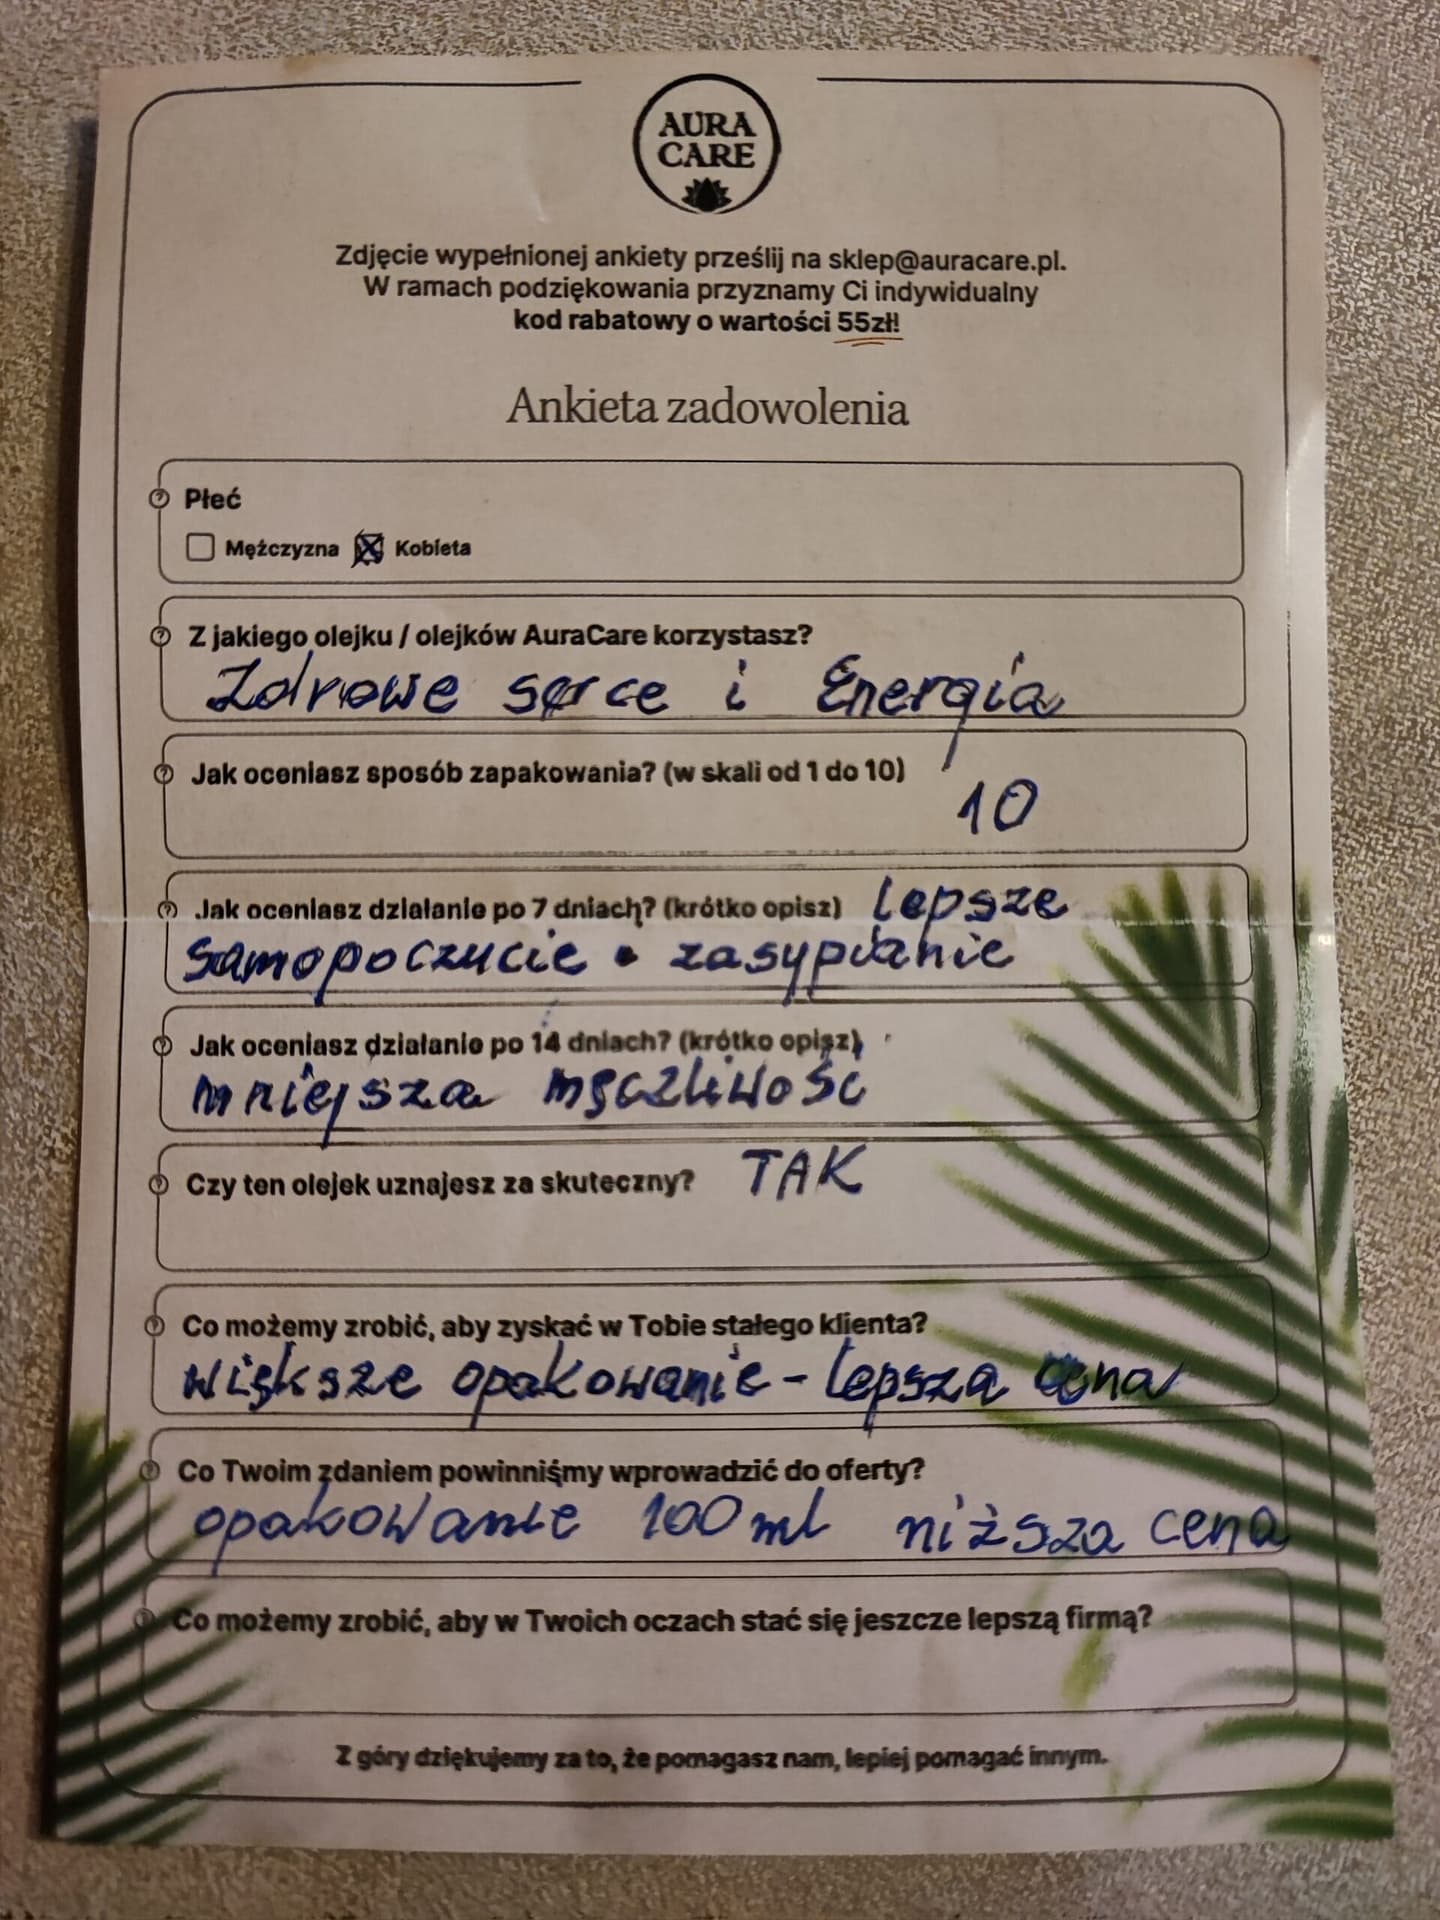 AURA
CARE
Zdjęcie wypełnionej ankiety prześlij na sklep@auracare.pl.
W ramach podziękowania przyznamy Ci indywidualny
kod rabatowy o wartości 55zł!
Ankieta zadowolenia
Płeć
Mężczyzna Kobieta
Z jakiego olejku / olejków AuraCare korzystasz?
Zdrowe serce i Energia
Jak oceniasz sposób zapakowania? (w skali od 1 do 10)
10
Jak oceniasz działanie po 7 dniach? (krótko opisz) lepsze
samopoczucie • zasypianie
Jak oceniasz działanie po 14 dniach? (krótko opisz)
mniejsza męczliwość
Czy ten olejek uznajesz za skuteczny? TAK
Co możemy zrobić, aby zyskać w Tobie stałego klienta?
większe opakowanie - lepsza cena
Co Twoim zdaniem powinniśmy wprowadzić do oferty?
opakowanie 100 ml niższa cena
Co możemy zrobić, aby w Twoich oczach stać się jeszcze lepszą firmą?
Z góry dziękujemy za to, że pomagasz nam, lepiej pomagać innym.